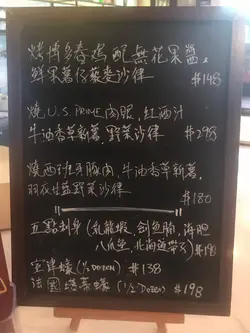 烤博多春鸡配無花果醬,
鮮果薯仔藜麥沙律 $148
燒U.S. PRIME肉眼,紅酒汁
牛油香草新薯,野菜沙律 $298
燒西班牙豚肉,牛油香草新薯,
野菜沙律 $180
五點刺身(乳龍蝦,劍魚腩,海胆
八爪魚,北海道帶子) $198
(½ DOZEN) $138
法國 蠔 (1/2 DOZEN) $198